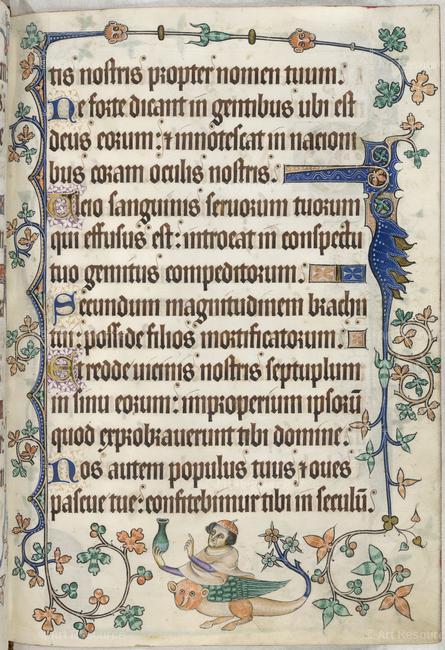 tis nostris propter nomen tuum.
Ne forte dicant in gentibus ubi est
deus eorum: ⁊ innotescat in nacioni
bus coram oculis nostris.
Ulcio sanguinis seruorum tuorum
qui effusus est: introeat in conspectu
tuo gemitus compeditorum.
Secundum magnitudinem brachii
tui: posside filios mortificatorum.
Et redde uicinis nostris septuplum
in sinu eorum: improperium ipsorū
quod exprobrauerunt tibi domine.
Nos autem populus tuus ⁊ oues
pascue tue: confitebimur tibi in seculū.
© Art Resource